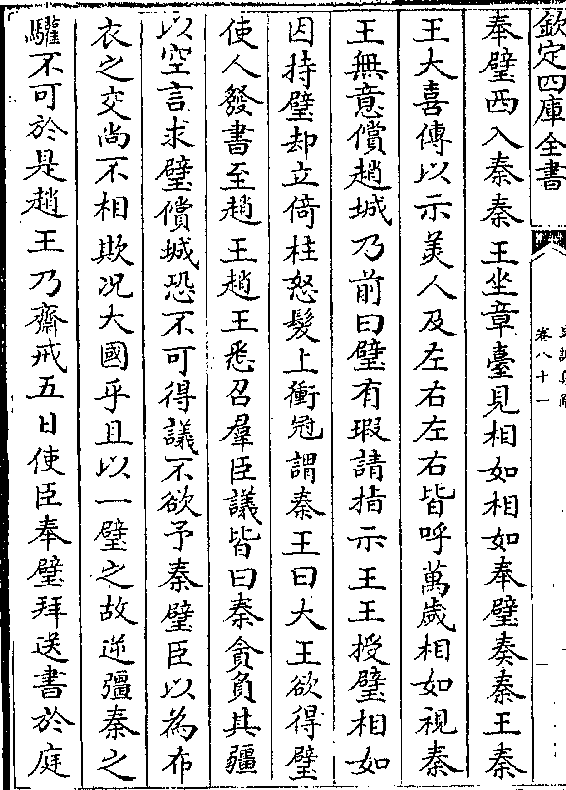 欽定四庫全書
卷八十一
奉璧西入秦秦王坐章臺見相如相如奉璧奏秦王秦
王大喜傳以示美人及左右左右皆呼萬歲相如視秦
王無意償趙城乃前曰璧有瑕請指示王王授璧相如
因持璧却立倚柱怒髮上衝冠謂秦王曰大王欲得璧
使人發書至趙王趙王悉召羣臣議皆曰秦貪負其彊
以空言求璧償城恐不可得議不欲予秦璧臣以為布
衣之交尚不相欺况大國乎且以一璧之故逆彊秦之
驩不可於是趙王乃齋戒五日使臣奉璧拜送書於庭